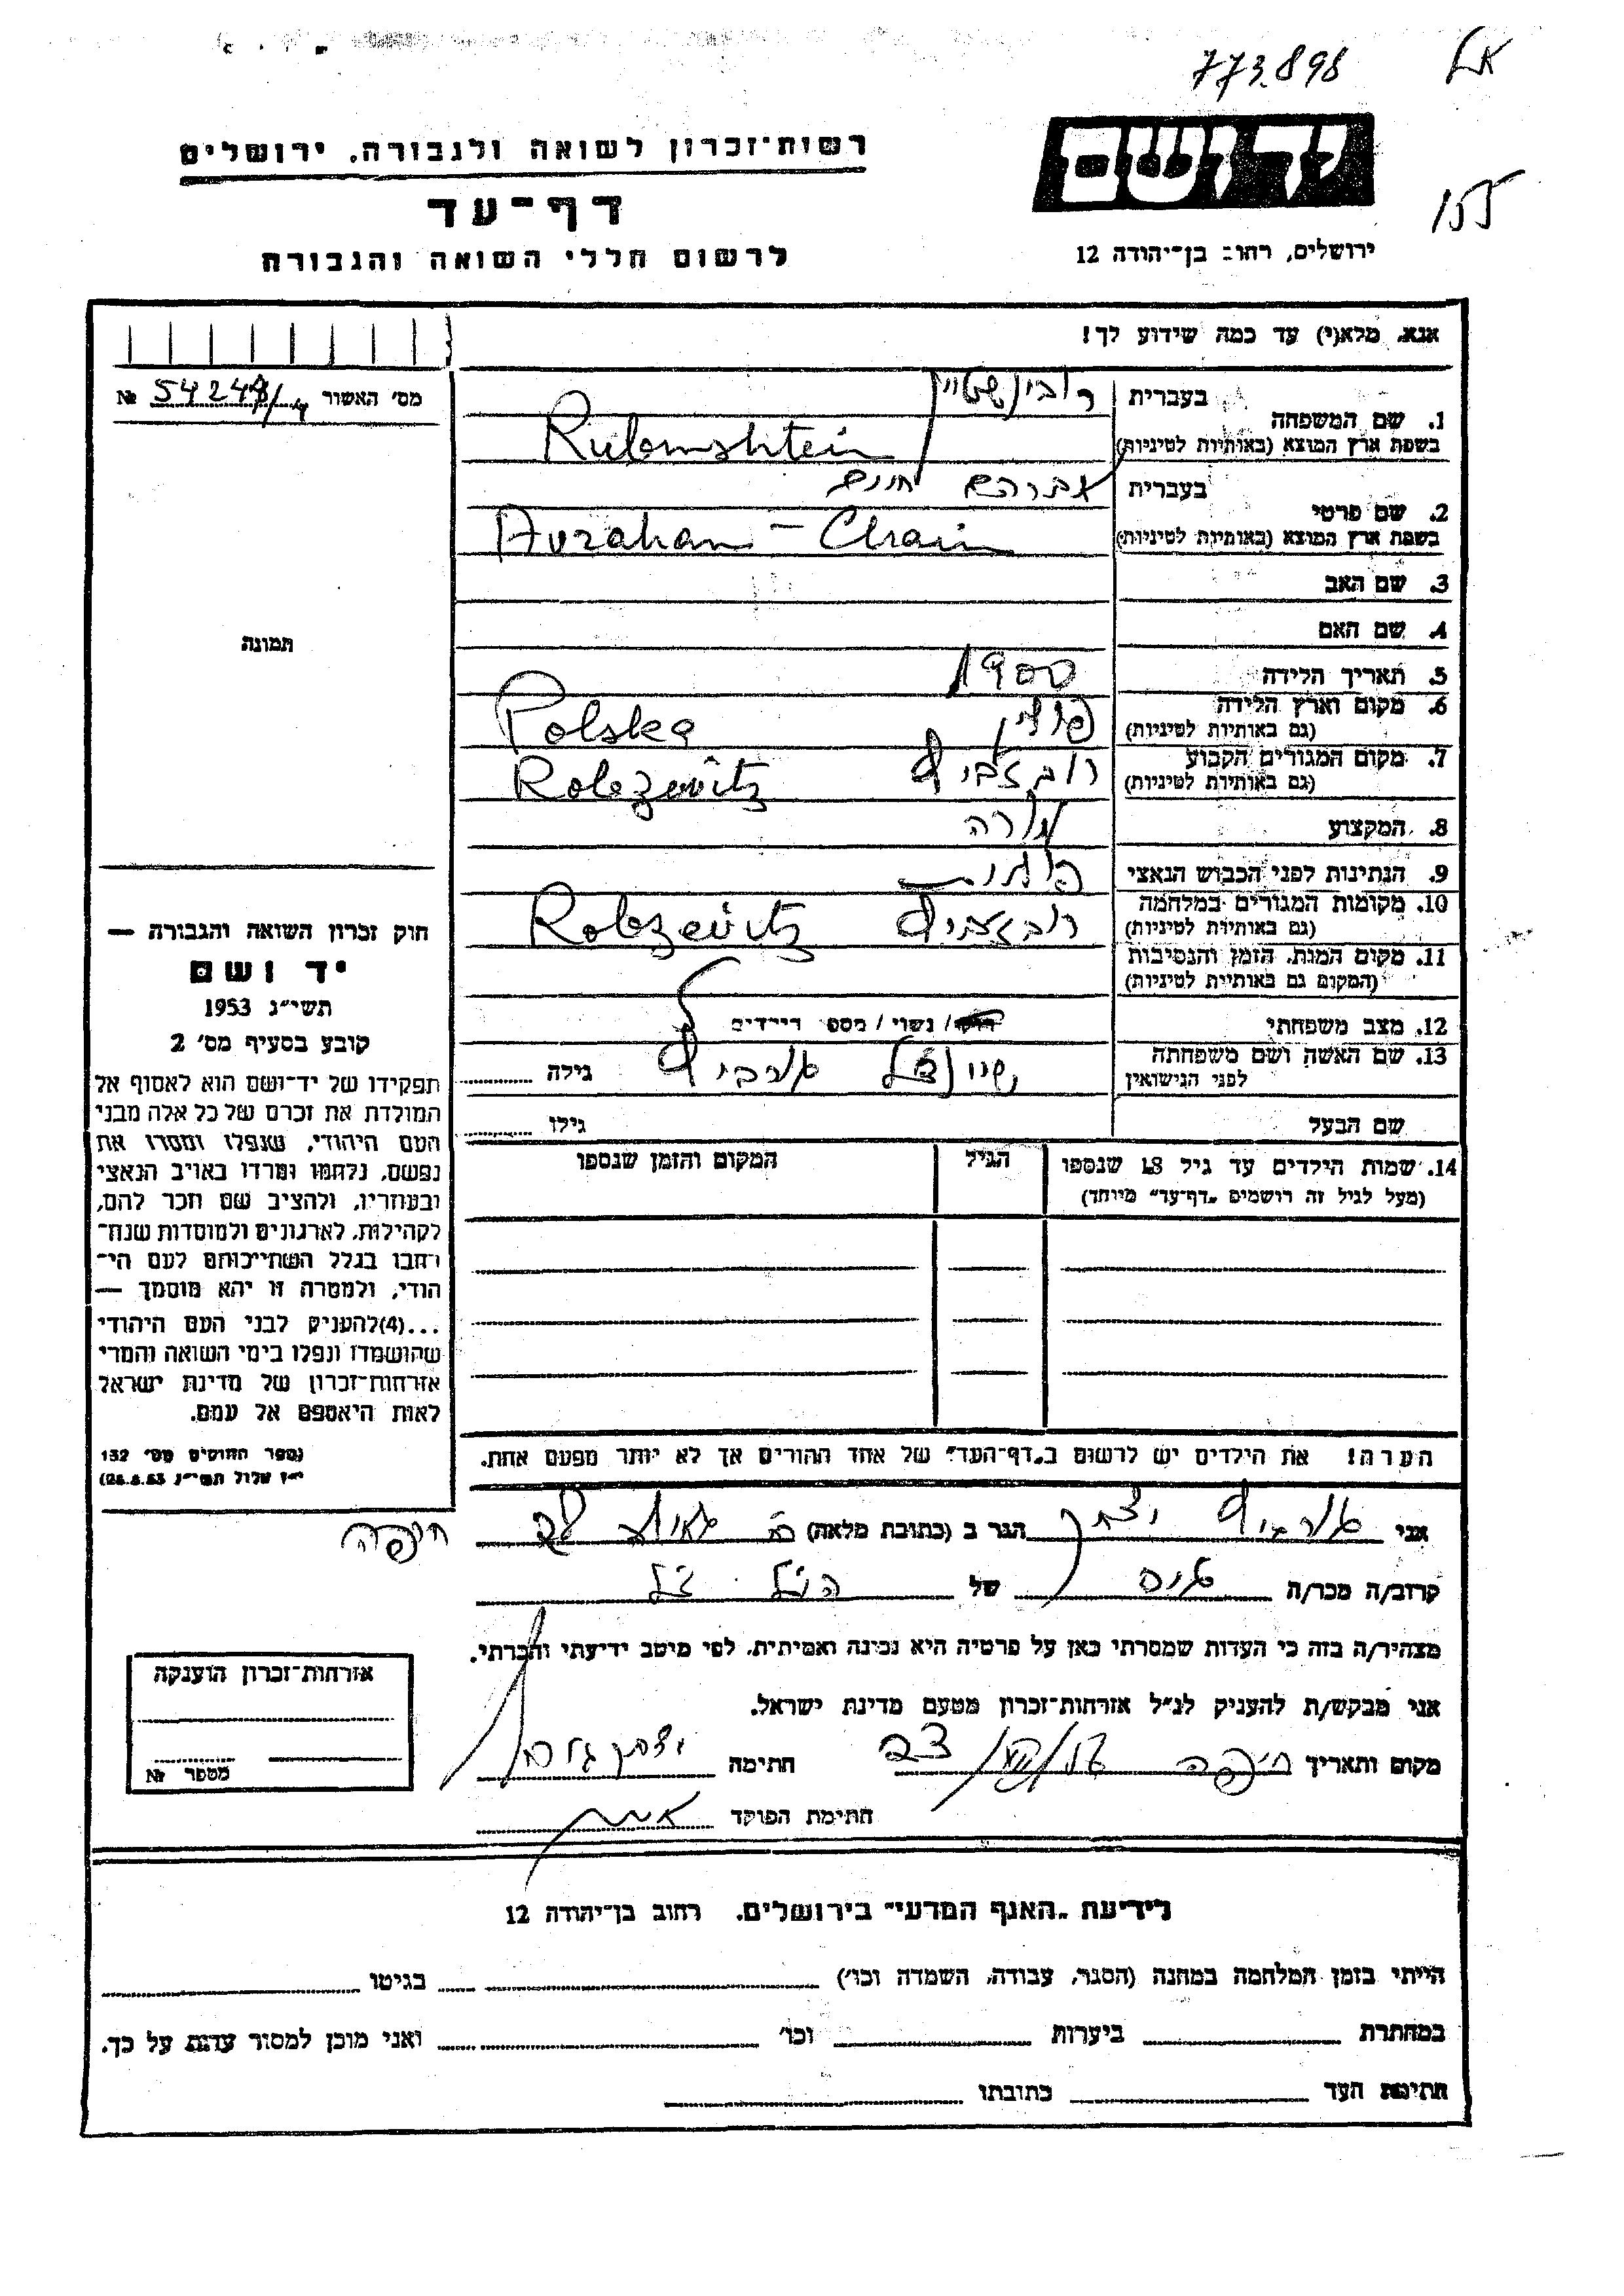 773898
יד ושם
רשות־זכרון לשואה ולגבורה, ירושלים
דף־עד
לרשום חללי השואה והגבורה
155
ירושלים, רחוב בן־יהודה 12
אנא, מלא(י) עד כמה שידוע לך!
מס׳ האשור № 54244/
1. שם המשפחה
בעברית רובינשטיין
בשפת ארץ המוצא (באותיות לטיניות) Rubinshtein
2. שם פרטי
בעברית אברהם חיים
בשפת ארץ המוצא (באותיות לטיניות) Avraham - Chaim
3. שם האב
4. שם האם
תמונה
5. תאריך הלידה 1900
6. מקום וארץ הלידה (גם באותיות לטיניות) פולין Polska
7. מקום המגורים הקבוע (גם באותיות לטיניות) רובזביץ Robzewitz
8. המקצוע מורה
9. הנתינות לפני הכבוש הנאצי
10. מקומות המגורים במלחמה (גם באותיות לטיניות) רובזביץ Robzewitz
11. מקום המות, הזמן והנסיבות (המקום גם באותיות לטיניות)
12. מצב משפחתי רווק / נשוי / מספ׳ הילדים
13. שם האשה ושם משפחתה לפני הנישואין שיינדל גורביץ גילה
שם הבעל גילו
14. שמות הילדים עד גיל 18 שנספו (מעל לגיל זה רושמים „דף־עד״ מיוחד)
הגיל
המקום והזמן שנספו
הערה! את הילדים יש לרשום ב„דף־העד״ של אחד ההורים אך לא יותר מפעם אחת.
חוק זכרון השואה והגבורה —
יד ושם
תשי״ג 1953
קובע בסעיף מס׳ 2
תפקידו של יד־ושם הוא לאסוף אל
המולדת את זכרם של כל אלה מבני
העם היהודי, שנפלו ומסרו את
נפשם, נלחמו ומרדו באויב הנאצי
ובעוזריו, ולהציב שם וזכר להם,
לקהילות, לארגונים ולמוסדות שנח־
רבו בגלל השתייכותם לעם הי־
הודי, ולמטרה זו יהא מוסמך —
...(4) להעניק לבני העם היהודי
שהושמדו ונפלו בימי השואה והמרי
אזרחות־זכרון של מדינת ישראל
לאות היאספם אל עמם.
(ספר החוקים מס׳ 132
י״ז אלול תשי״ג 28.8.53)
אני גורביץ יצחק הגר ב (כתובת מלאה) חיפה
קרוב/ה מכר/ה גיס של הנ״ל
מצהיר/ה בזה כי העדות שמסרתי כאן על פרטיה היא נכונה ואמיתית, לפי מיטב ידיעתי והכרתי.
אני מבקש/ת להעניק לנ״ל אזרחות־זכרון מטעם מדינת ישראל.
מקום ותאריך חיפה חתימה
חתימת הפוקד
אזרחות־זכרון הוענקה
מספר №
לידיעת „האגף המדעי״ בירושלים, רחוב בן־יהודה 12
הייתי בזמן המלחמה במחנה (הסגר, עבודה, השמדה וכו׳) בגיטו
במחתרת ביערות וכו׳ ואני מוכן למסור עדות על כך.
חתימת העד כתובתו